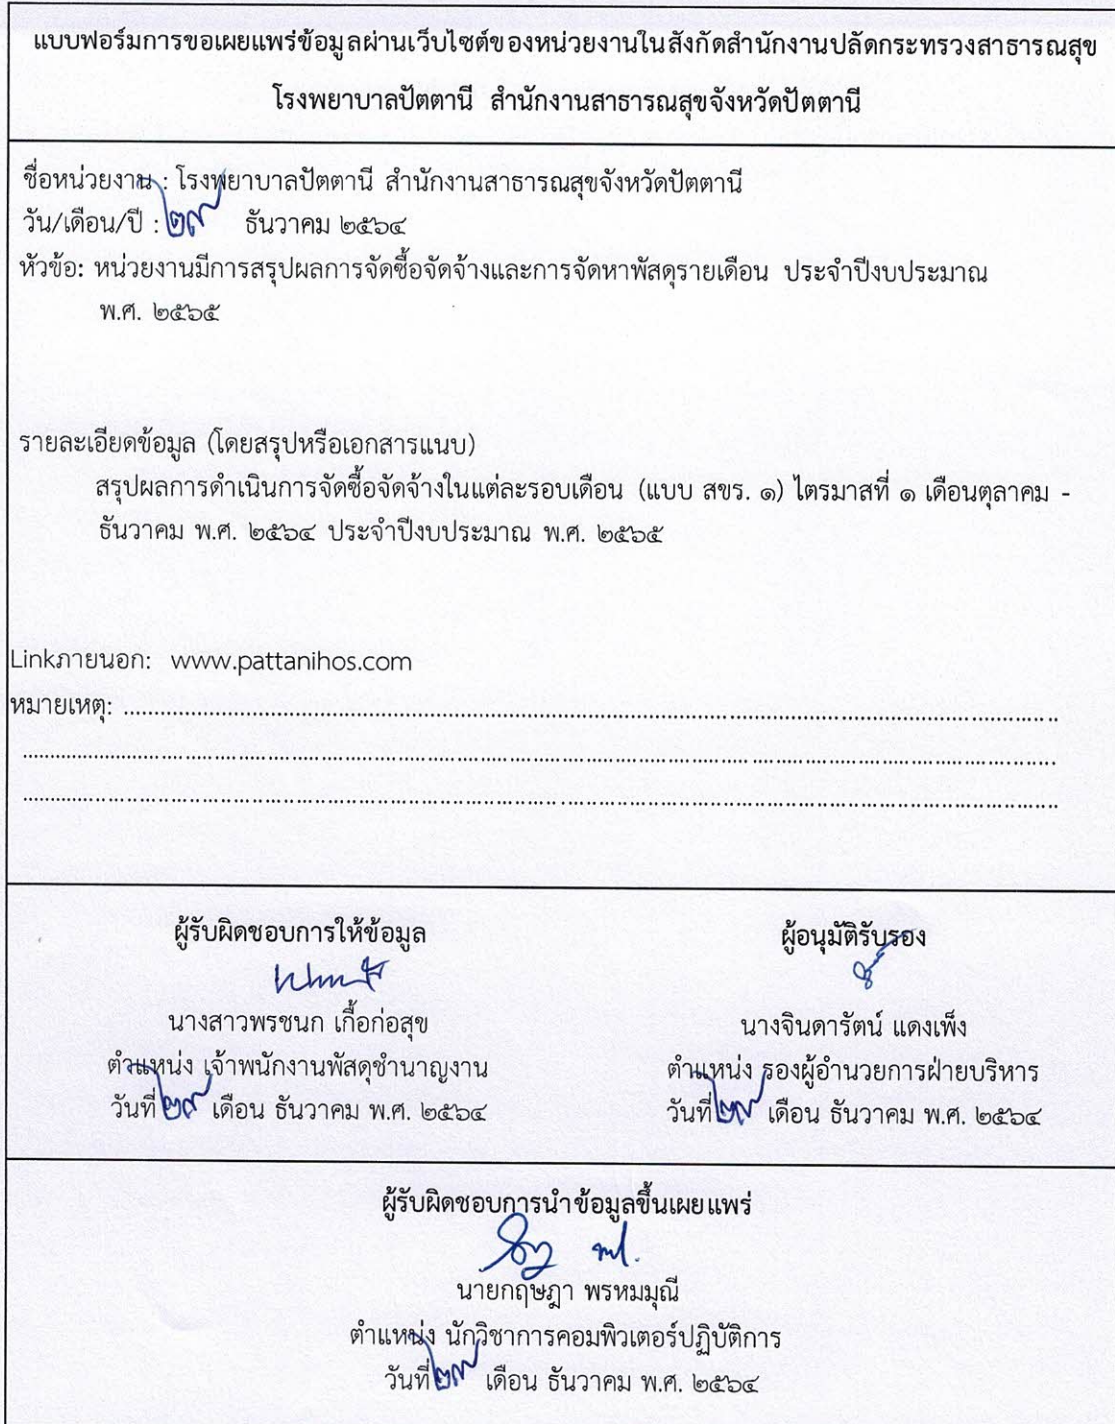 แบบฟอร์มการขอเผยแพร่ข้อมูลผ่านเว็บไซต์ของหน่วยงานในสังกัดสำนักงานปลัดกระทรวงสาธารณสุข
โรงพยาบาลปัตตานี สำนักงานสาธารณสุขจังหวัดปัตตานี
ชื่อหน่วยงาน : โรงพยาบาลปัตตานี สำนักงานสาธารณสุขจังหวัดปัตตานี
วัน/เดือน/ปี : ๒๙ ธันวาคม ๒๕๖๔
หัวข้อ: หน่วยงานมีการสรุปผลการจัดซื้อจัดจ้างและการจัดหาพัสดุรายเดือน ประจำปีงบประมาณ
พ.ศ. ๒๕๖๕
รายละเอียดข้อมูล (โดยสรุปหรือเอกสารแนบ)
สรุปผลการดำเนินการจัดซื้อจัดจ้างในแต่ละรอบเดือน (แบบ สขร. ๑) ไตรมาสที่ ๑ เดือนตุลาคม -
ธันวาคม พ.ศ. ๒๕๖๔ ประจำปีงบประมาณ พ.ศ. ๒๕๖๕
Linkภายนอก: www.pattanihos.com
หมายเหตุ:
ผู้รับผิดชอบการให้ข้อมูล
นางสาวพรชนก เกื้อก่อสุข
ตำแหน่ง เจ้าพนักงานพัสดุชำนาญงาน
วันที่ ๒๙ เดือน ธันวาคม พ.ศ. ๒๕๖๔
ผู้อนุมัติรับรอง
นางจินดารัตน์ แดงเพ็ง
ตำแหน่ง รองผู้อำนวยการฝ่ายบริหาร
วันที่ ๒๙ เดือน ธันวาคม พ.ศ. ๒๕๖๔
ผู้รับผิดชอบการนำข้อมูลขึ้นเผยแพร่
นายกฤษฎา พรหมมุณี
ตำแหน่ง นักวิชาการคอมพิวเตอร์ปฏิบัติการ
วันที่ ๒๙ เดือน ธันวาคม พ.ศ. ๒๕๖๔